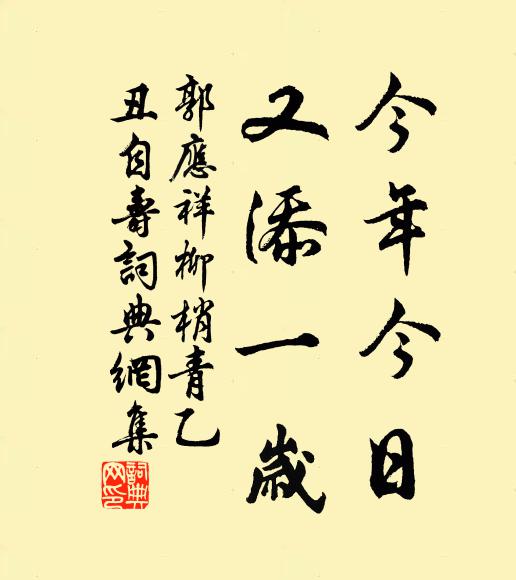 今年今日
又添一歲
郭應祥柳梢青乙
丑自壽詞典網集
詞典網印